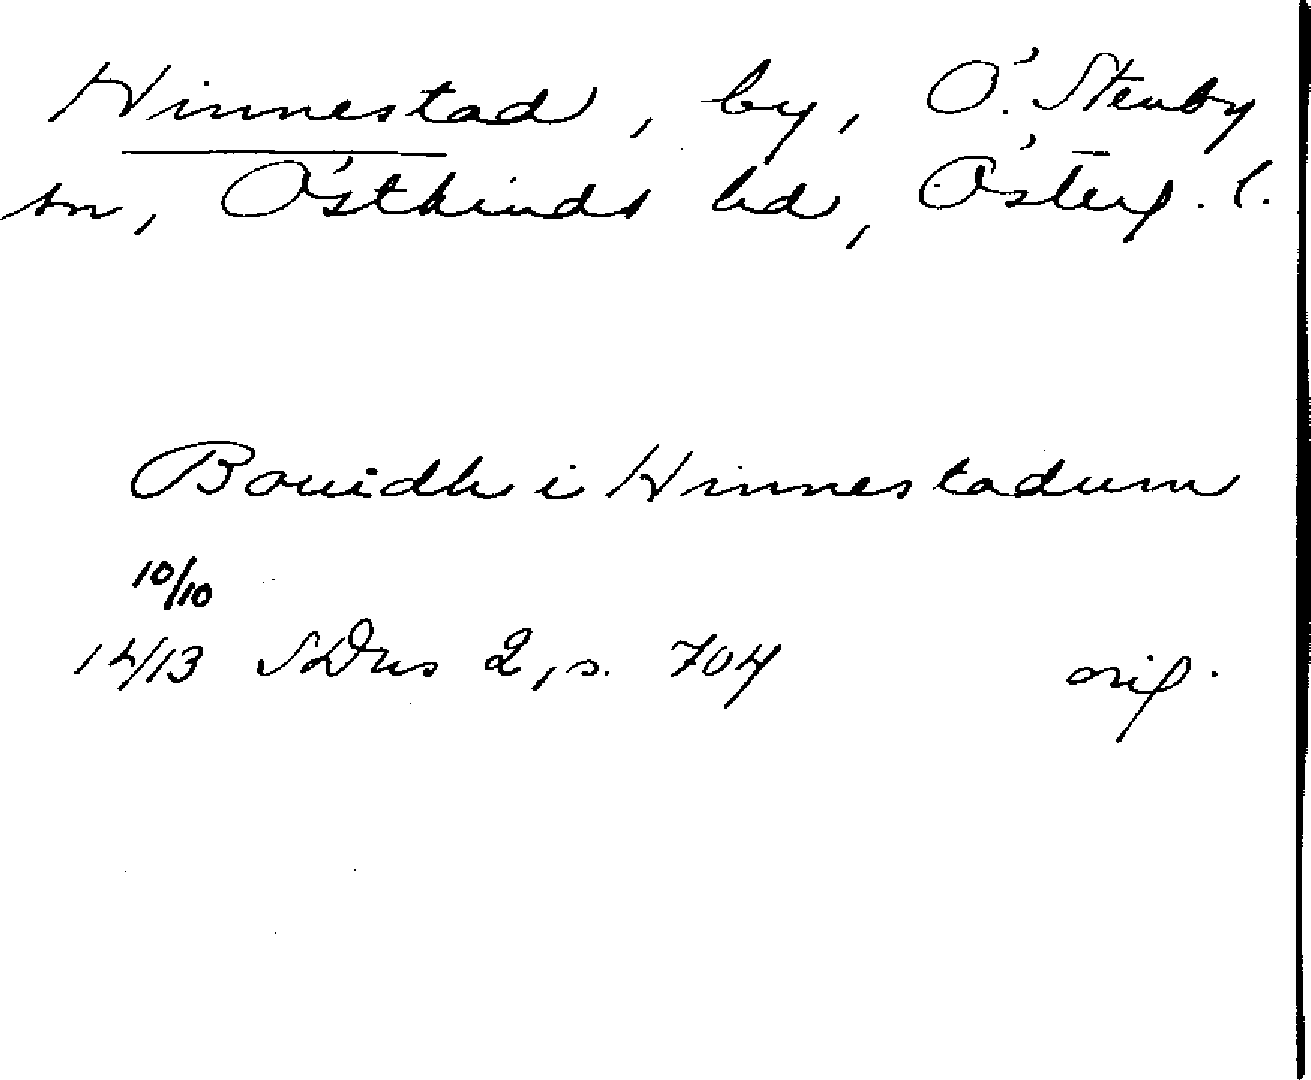 Hinnestad, by, Ö. Stenby
sn, Östkinds hd, Österg. l.
Bouidh i Hinnestadum
10/10
14/13 SDns 2, s. 704 orig.